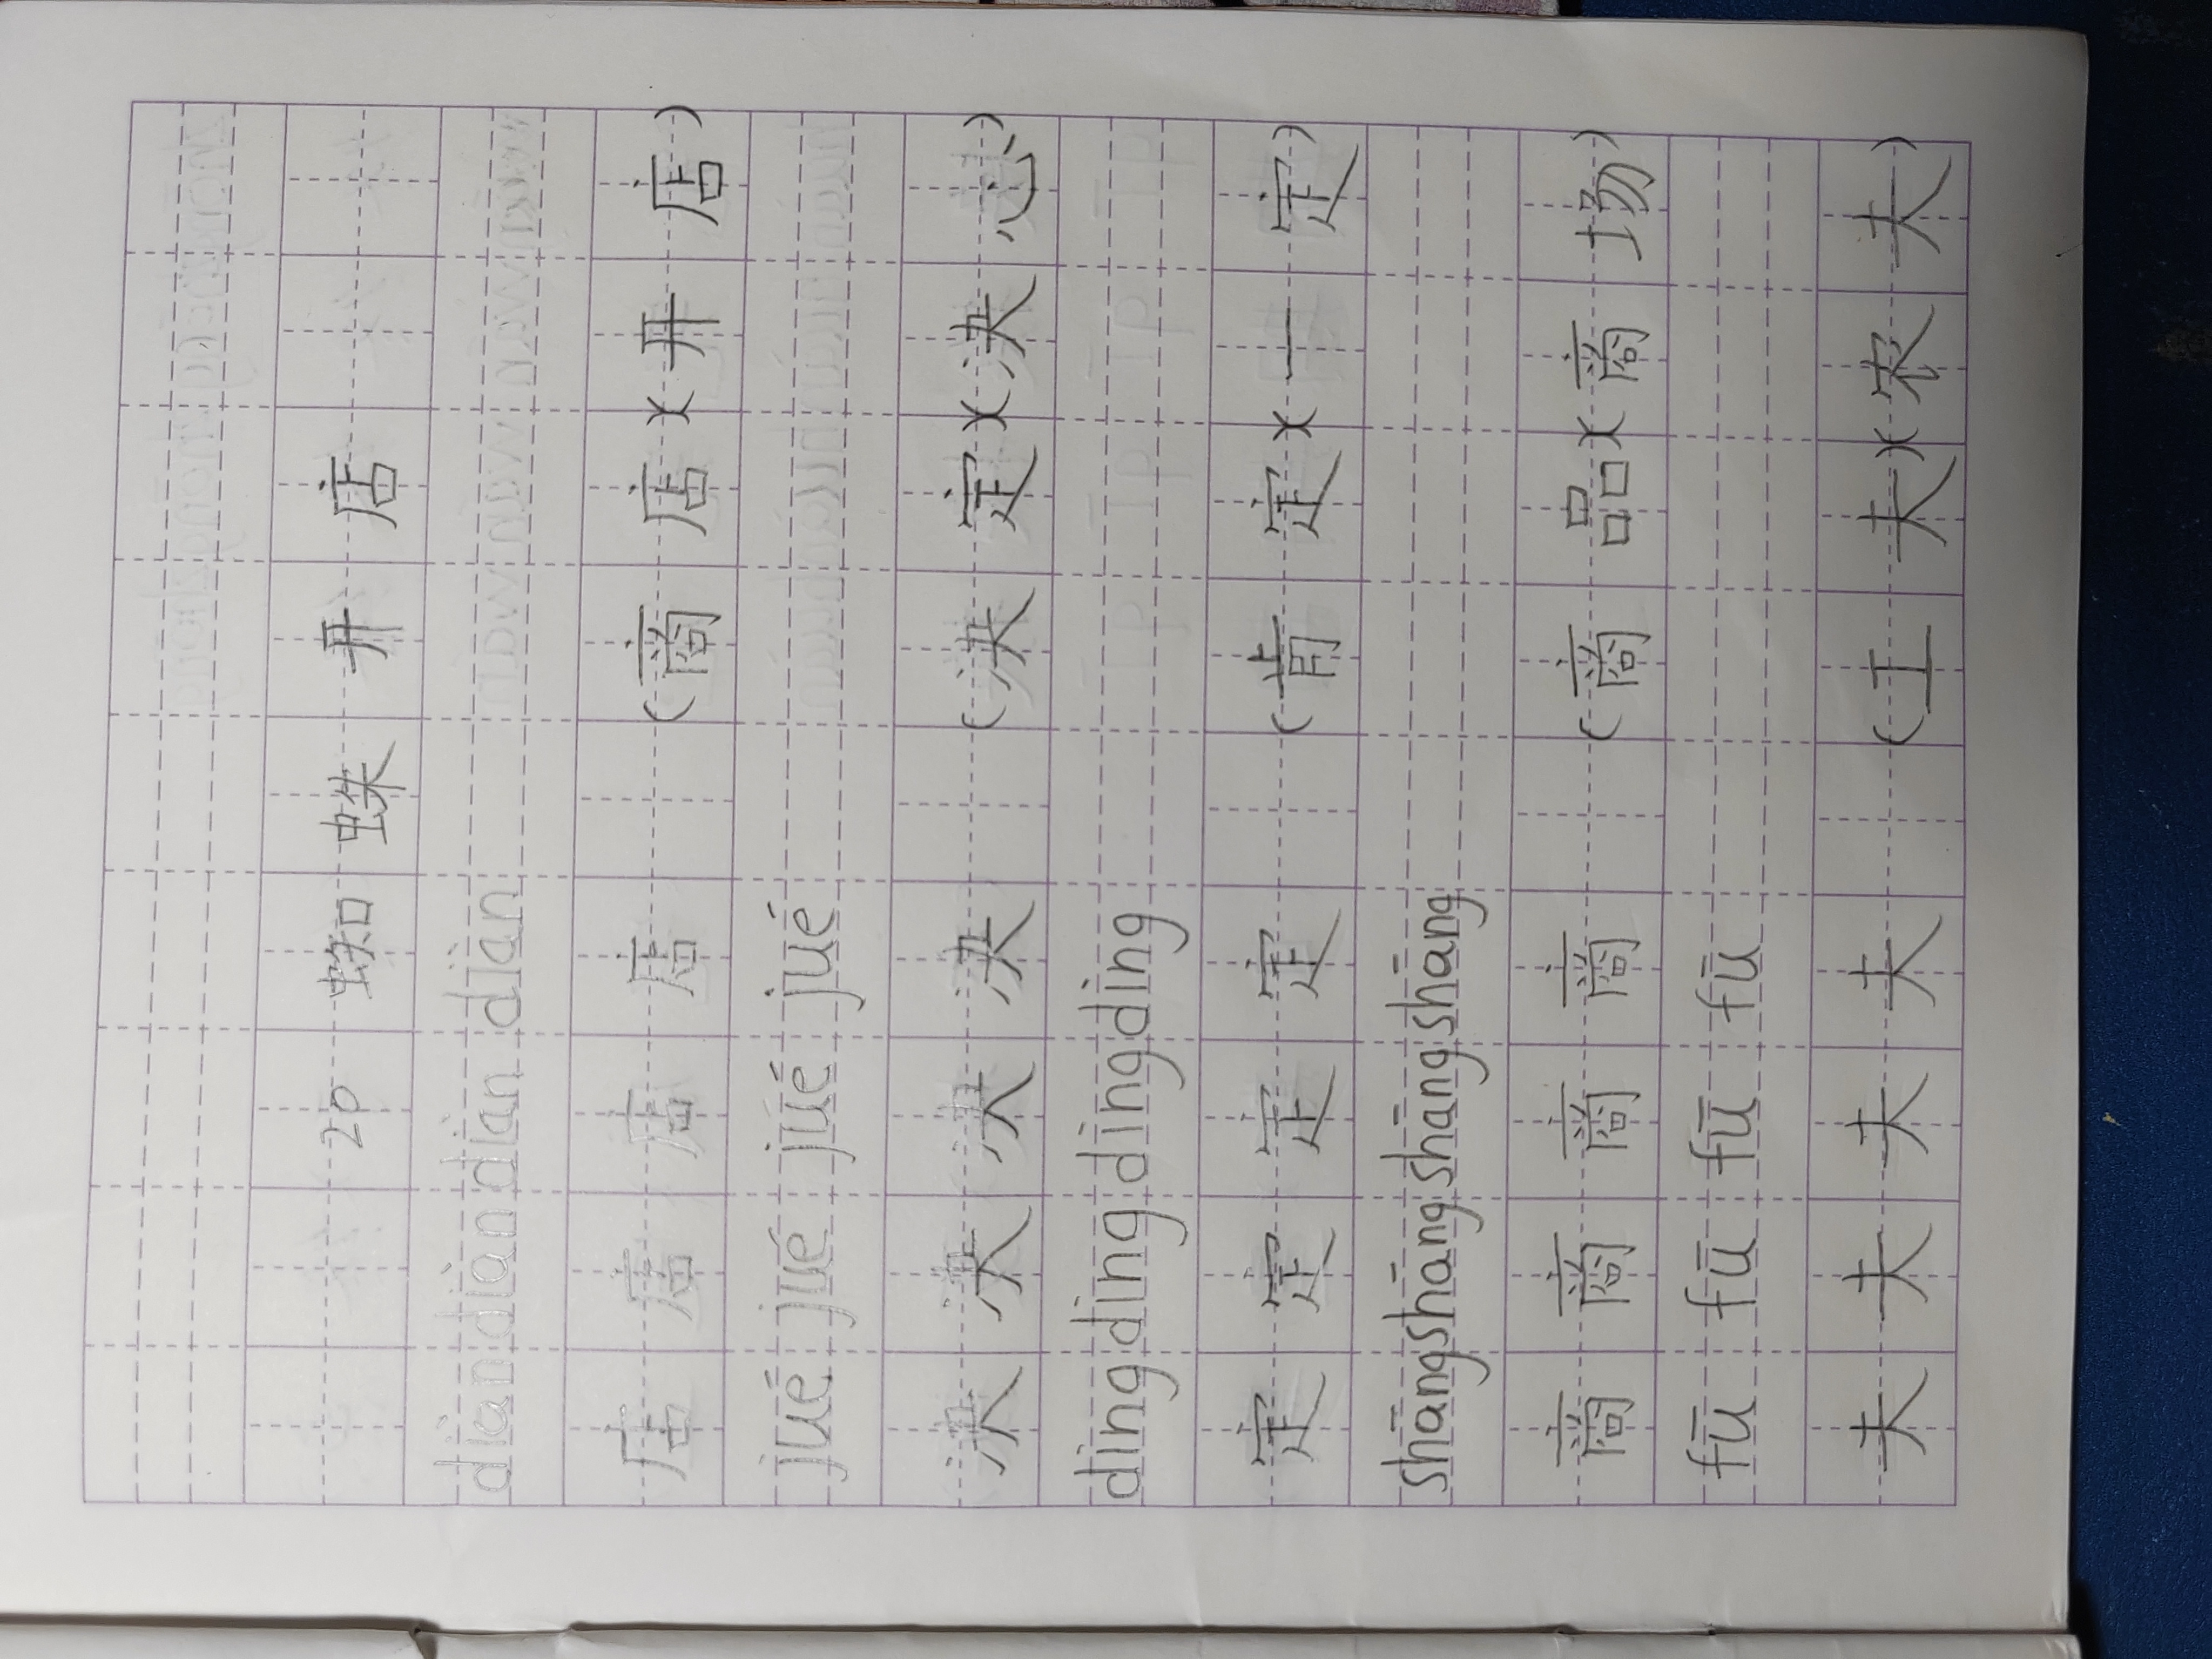 20 蜘蛛开店
diàn diàn diàn diàn
店 店 店 店 (商店)(开店)
jué jué jué jué
决 决 决 决 (决定)(决心)
dìng dìng dìng dìng
定 定 定 定 (肯定)(一定)
shāng shāng shāng shāng
商 商 商 商 (商品)(商场)
fū fū fū fū
夫 夫 夫 夫 (工夫)(农夫)